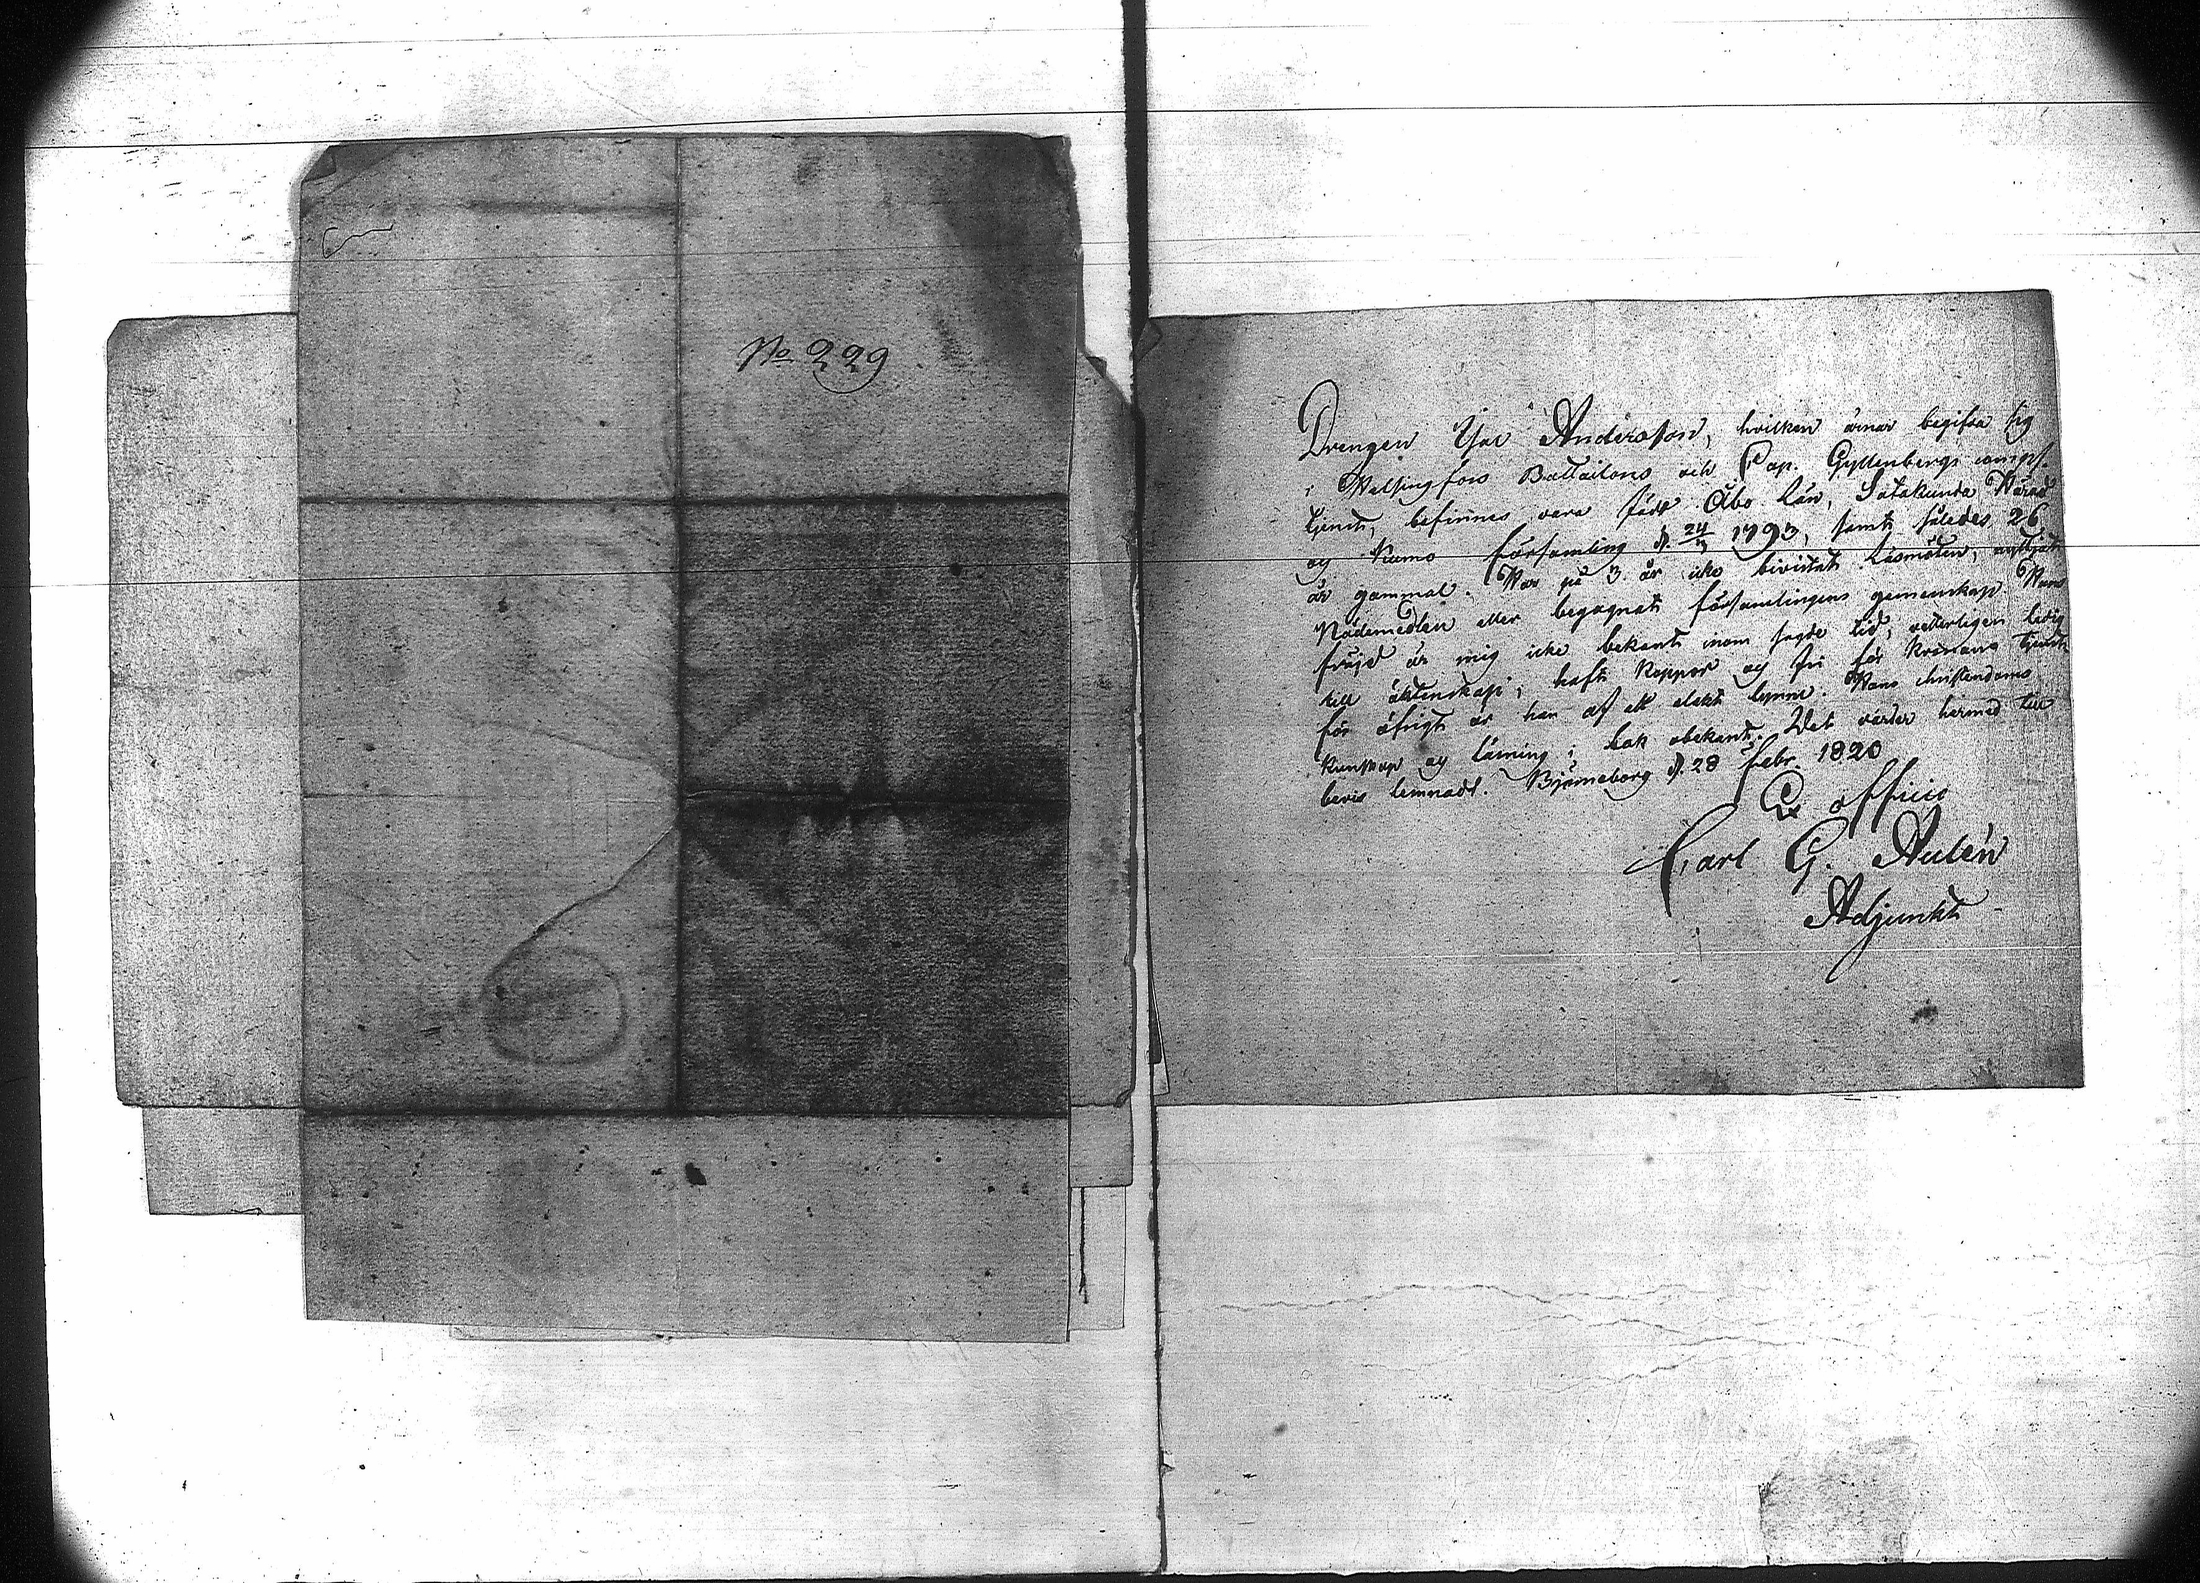 No 229
Drengen Isac Andersson, hvilken ärnar begifva sig
i Helsingfors Battailons och Cap. Gyllenbergs comp.
tjenst, befinnes vara född Åbo län, Satakunda Härad
og Kumo församling d. 24/3 1793, samt således 26
år gammal. Har på 3 år icke bivistat Läsmöten, nyttjat
Nådemedlen eller begagnat församlingens gemenskap. Hans
frejd är mig icke bekant inom sagde tid, vetterligen ledig
till äktenskap, haft Koppor og fri för Kronans tjenst
för öfrigt är han af ett elakt lynne. Hans christendoms
kunskap og läsning i bok obekant. Det varder hermed till
bevis lemnadt. Björneborg d. 28 Febr. 1820
Ex officio
Carl G. Aulén
Adjunkt